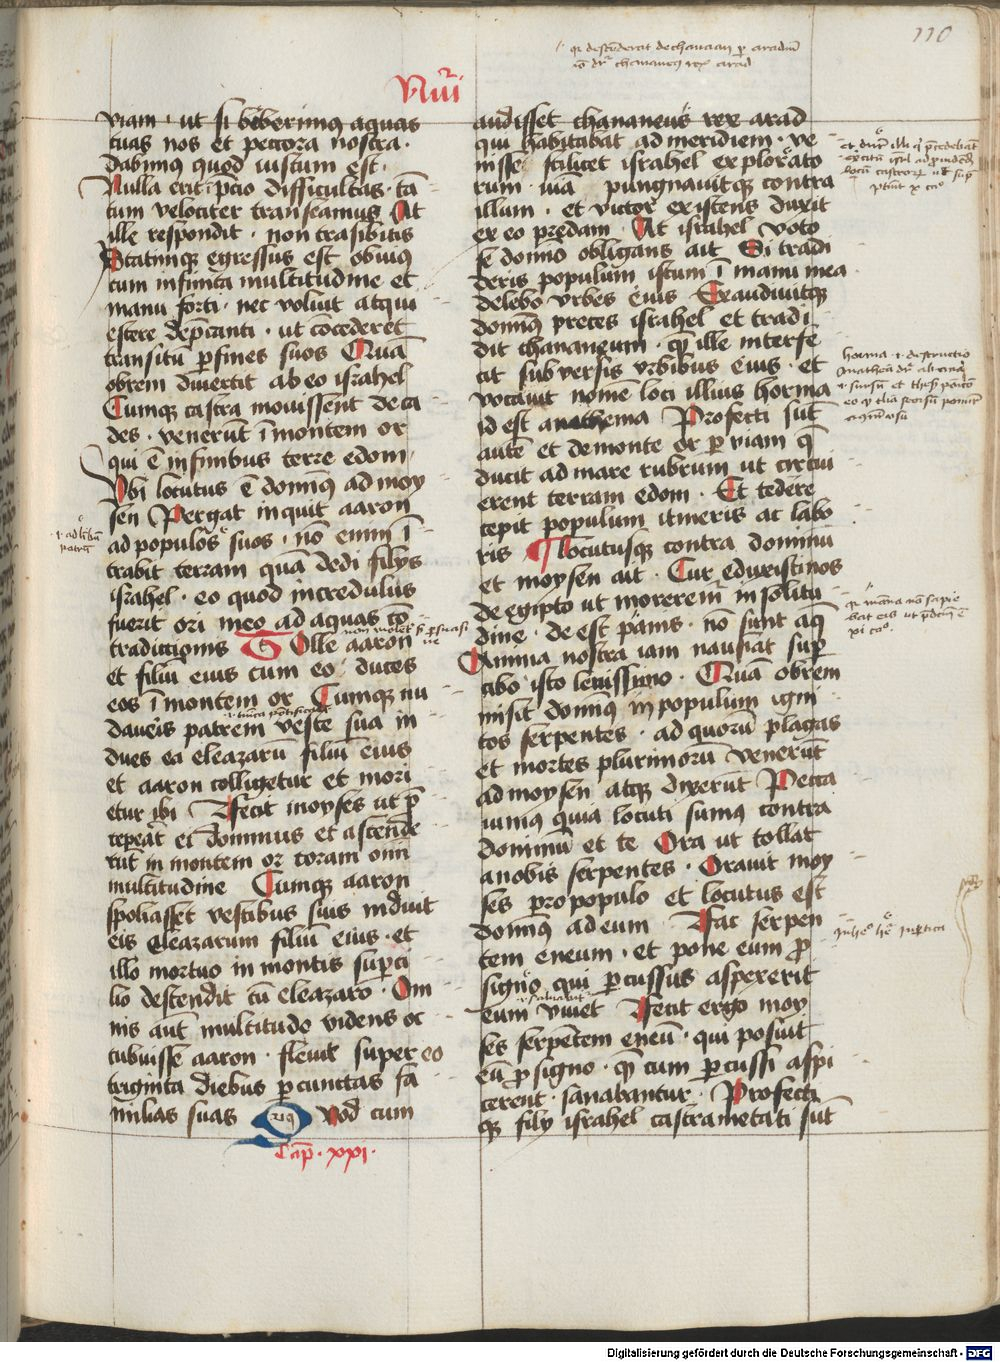 110
Nu̅i
viam · ut si biberimus aquas
tuas nos et peccora nostra ·
dabimus quod iustum est ·
Nulla erit i̅ p̅cio difficultas · ta̅
tum velociter transeamus At
ille respondit · non tra̅sibitis
Statimque egressus est obvius
cum infinita multitudine et
manu forti · nec voluit atqui
escere dep̅canti · ut co̅cederet
transitu̅ p fines suos Qua̅
obrem divertit ab eo israhel
Cumque castra movissent de ca
des · venerunt i̅ montem or
qui e̅ in finibus terre edom
Ubi locutus e̅ dominus ad moy
sen Pergat inquit aaron
ad populos suos · no̅ enim i̅
trabit terram qua̅ dedi filys
israhel · eo quod incredulus
fuerit ori meo ad aquas co̅
tradictionis Tolle aaron
et filiu̅ eius cum eo duces
eos i̅ montem or Cumque nu
daveis patrem veste sua in
dues ea eleazaru̅ filiu̅ eius
et aaron colligetur et mori
etur ibi Fecit moyses ut p̅
ceperat ei dominus et ascende
ru̅t in montem or coram omi
multitudine Cumque aaron
spoliasset vestibus suis induit
eis eleazarum filiu̅ eius · et
illo mortuo in montis sup̅ci
lio descendit cu̅ eleazaro · Om
nis aut̅ multitudo videns oc
cubuisse aaron · flevit super eo
triginta diebus p cunctas fa
milias suas Quod cum
Cap̅ · xxi ·
audisset chananeus rex arad
qui habitabat ad meridiem · ve
nisse scilicet israhel explorato
rum · via pungnavitque contra
illum · et victor existens duxit
ex eo predam · At israhel voto
se domino obligans ait Si tradi
deris populum istum i̅ manu mea
delebo vrbes eius Exaudivitque
dominus preces israhel et tradi
dit chananeum · que̅ ille interfe
cit subversis vrbibus eius · et
vocavit nomen loci illius horma
id est anathema Profecti su̅t
aute̅ et de monte or per viam que̅
ducit ad mare rubrum ut circui
erent terram edom · Et tedere
cepit populum itineris ac labo
ris Locutusque contra dominu̅
et moysen ait · Cur eduxisti nos
de egipto ut moreremur in solitu
dine · deest panis · no̅ sunt aque
Anima nostra iam nausiat super
cibo isto levissimo · Qua̅ obrem
misit dominus in populum igni
tos serpentes · ad quoru̅ plagas
et mortes plurimoru̅ veneru̅t
ad moysen atque dixeru̅t Pecca
vimus quia locuti sumus contra
dominu̅ et te Ora ut tollat
a nobis serpentes · Oravit moy
ses pro populo et locutus est
dominus ad eum Fac serpen
tem eneum · et pone eum p̅
signo qui percussus aspexerit
eum vivet Fecit ergo moy
ses serpe̅tem eneu̅ · qui posuit
eu̅ p̅ signo · que̅ cum percussi aspi
cerent · sanabantur · Profecti
que fily israhel castrametati su̅t
Digitalisierung gefördert durch die Deutsche Forschungsgemeinschaft - DFG